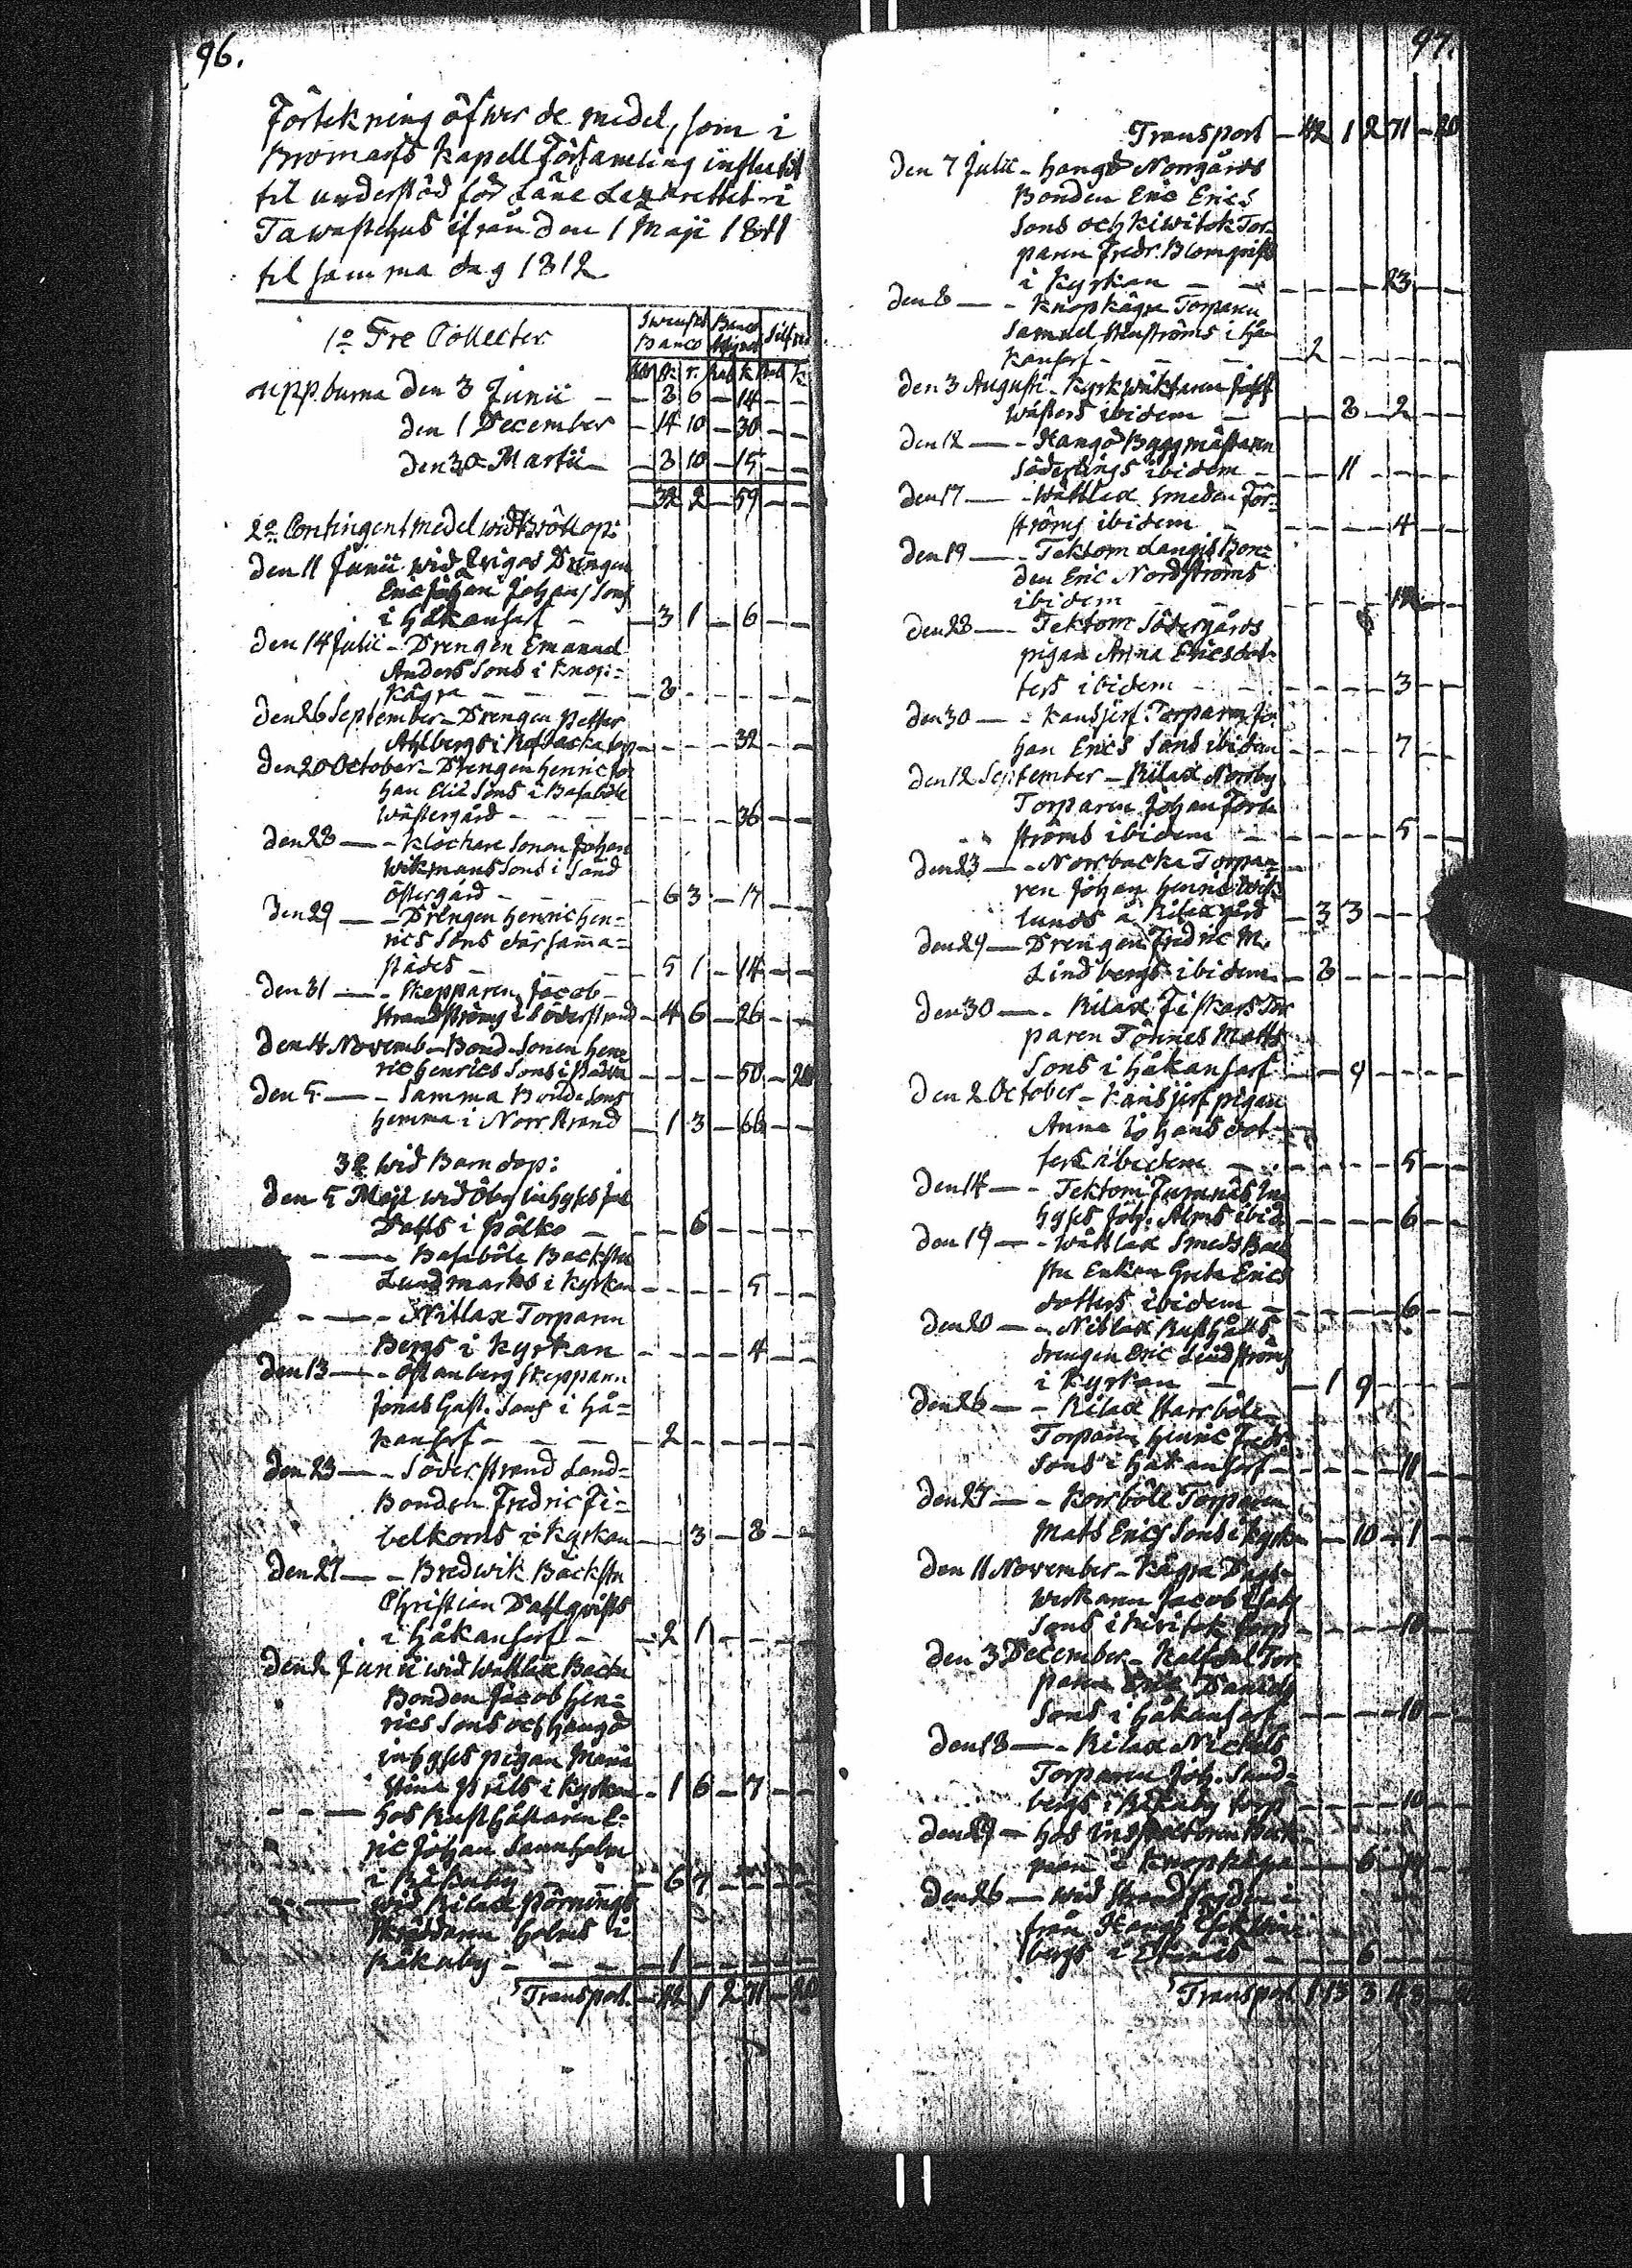 96.
Förtekning öfwer de medel, som i
Bromarfs Kapell Församling influtit
til understöd för Läne Lazarettet i
Tawastehus ifrån den 1 Maji 1811
til samma dag 1812
1o Tre Collecter
Swensk Banco Banco Silfver
Banco
uppburna den 3 Junii - - 8 6 - 14 - -
den 1 December - 14 10 - 30 - -
den 30 Martii - 8 10 - 15 - -
- 32 2 - 59 - -
2o Contingent medel wid Bröllop:
den 11 Junii wid Drängen
Eric Johan Johans Sons
i Håkansarf - - 3 1 - 6 - -
den 14 Julii - Drengen Emanuel
Anders Sons i Knop=
Kägra - - - - 8 - - - - -
den 26 September - Drengen Petter
Ahlbergs i - - - - 32 - -
den 20 October - Drengen Henric Jo
han Eric Sons i Basaböle
Wästergård - - - - - - 36 - -
den 28 - Klockare Sonen Johan
Wikmans Sons i Sand
Östergård - - 6 3 - 17 - -
den 29 - Drengen Henric Hen=
rics Sons där samma=
städes - - - 5 1 - 14 - -
den 31 - Skepparen Jacob
Strandströms i Söderstrand - 4 6 - 26 - -
den 4 Novemb - Bond Sonen Hen
ric Henrics Sons i - - - - 50 - 20
den 5 - Samma Bonde Sons
hemma i Norrstrand - 1 3 - 66 - -
3o Wid Barndop:
den 5 Maji wid Öby Inhyses
i Pölko - - - 6 - - - -
- - - Basaböle Backstu
Lundmarks i Kyrkan - - - - 5 - -
- - - Nitlax Torparen
Bergs i Kyrkan - - - - 4 - -
den 13 - Östanberg Skepparen
Jonas Gust. Sons i Hå=
kansarf - - - - 2 - - - - -
den 23 - Söderstrand Land=
Bonden Fredric Fi=
belkorns i Kyrkan - - 3 - 8 - -
den 27 - Bredwik Backstu
Christian Dahlqvists
i Håkansarf - - 2 1 - - - -
den 2 Junii wid Wättlax Backa
Bonden Jacob Hen=
rics Sons och Hangö
inhyses pigan Maria
Stina i Kyrkan - 1 6 - 7 - -
- - - hos Rusthållaren E=
ric Johan Sannholm
i Råkaby - - 6 7 - - - -
- - - wid Rilax Pörnings
Skräddaren Holms i
Råkaby - - - 1 - - - - -
Transport - 42 1 2 71 - 20
97.
Transport - 42 1 2 71 - 20
den 7 Julii - Hangö Norrgårds
Bonden Eric Erics
Sons och Kiwitok Tor=
paren Fredr. Blomqvists
i Kyrkan - - - - - - 23 - -
den 8 - Knopkägra Torparen
Samuel Stenströms i Hå=
kansarf - - - 2 - - - - -
den 3 Augusti - Kyrkwäktaren
Wästers ibidem - - - 8 - 2 - -
den 12 - Hangö Byggmästaren
Söderlings ibidem - - - 11 - - - -
den 17 - Wättlax Smeden For=
ströms ibidem - - - - - 4 - -
den 19 - Tektom Langis Bon=
den Eric Nordströms
ibidem - - - - - 12 - -
den 23 - Tektom Södergårds
pigan Anna Ericsdot=
ters ibidem - - - - - 3 - -
den 30 - Kansjerf Torparen Jo=
han Erics Sons ibidem - - - - 7 - -
den 12 September - Rilax Norrby
Torparen Johan Fors=
ströms ibidem - - - - - 5 - -
den 23 - Norrbacka Torpa=
ren Johan Henric Wik=
lunds å Rilax gård - 3 3 - - -
den 24 - Drengen Fredric M.
Lindbergs ibidem - 8 - - - - -
den 30 - Rilax Fiskars Tor
paren Tönnes Matts
Sons i Håkansarf - - 9 - - - -
den 2 October - Kansjerf pigan
Anna Johans dot=
ters ibidem - - - - - 5 - -
den 14 - Tektom Jumnäs In=
hyses Joh. Alms ibid. - - - - 6 - -
den 19 - Wättlax Smeds Back
stu Enkan Greta Erics
dotters ibidem - - - - - 6 - -
den 20 - Nitlax Rusthålls
drengen Eric Lindströms
i Kyrkan - - 1 9 - - - -
den 26 - Rilax Harrböle
Torparen Henric
Sons i Håkansarf - - - - 11 - -
den 27 - Korrböle Torparen
Mats Erics Sons i Kyrk. - - 10 - 1 - -
den 11 November - Kägra Dags=
werkaren Jacob
Sons i Kivitok torp - - - - 10 - -
den 3 December - Kalfdal Tor
paren Eric Davids
Sons i Håkansarf - - - - 10 - -
den 18 - Rilax Nickels
Torparen Joh. Sand=
bergs i Råkaby torp - - - - 10 - -
hos Inspectoren
i Knopkägra - - 6 - 14 - -
den 26 - wid Strandfogden i
från Hangö
bergs i Ekenäs - - 6 - - - -
Transport 1 13 3 4 3 - 20